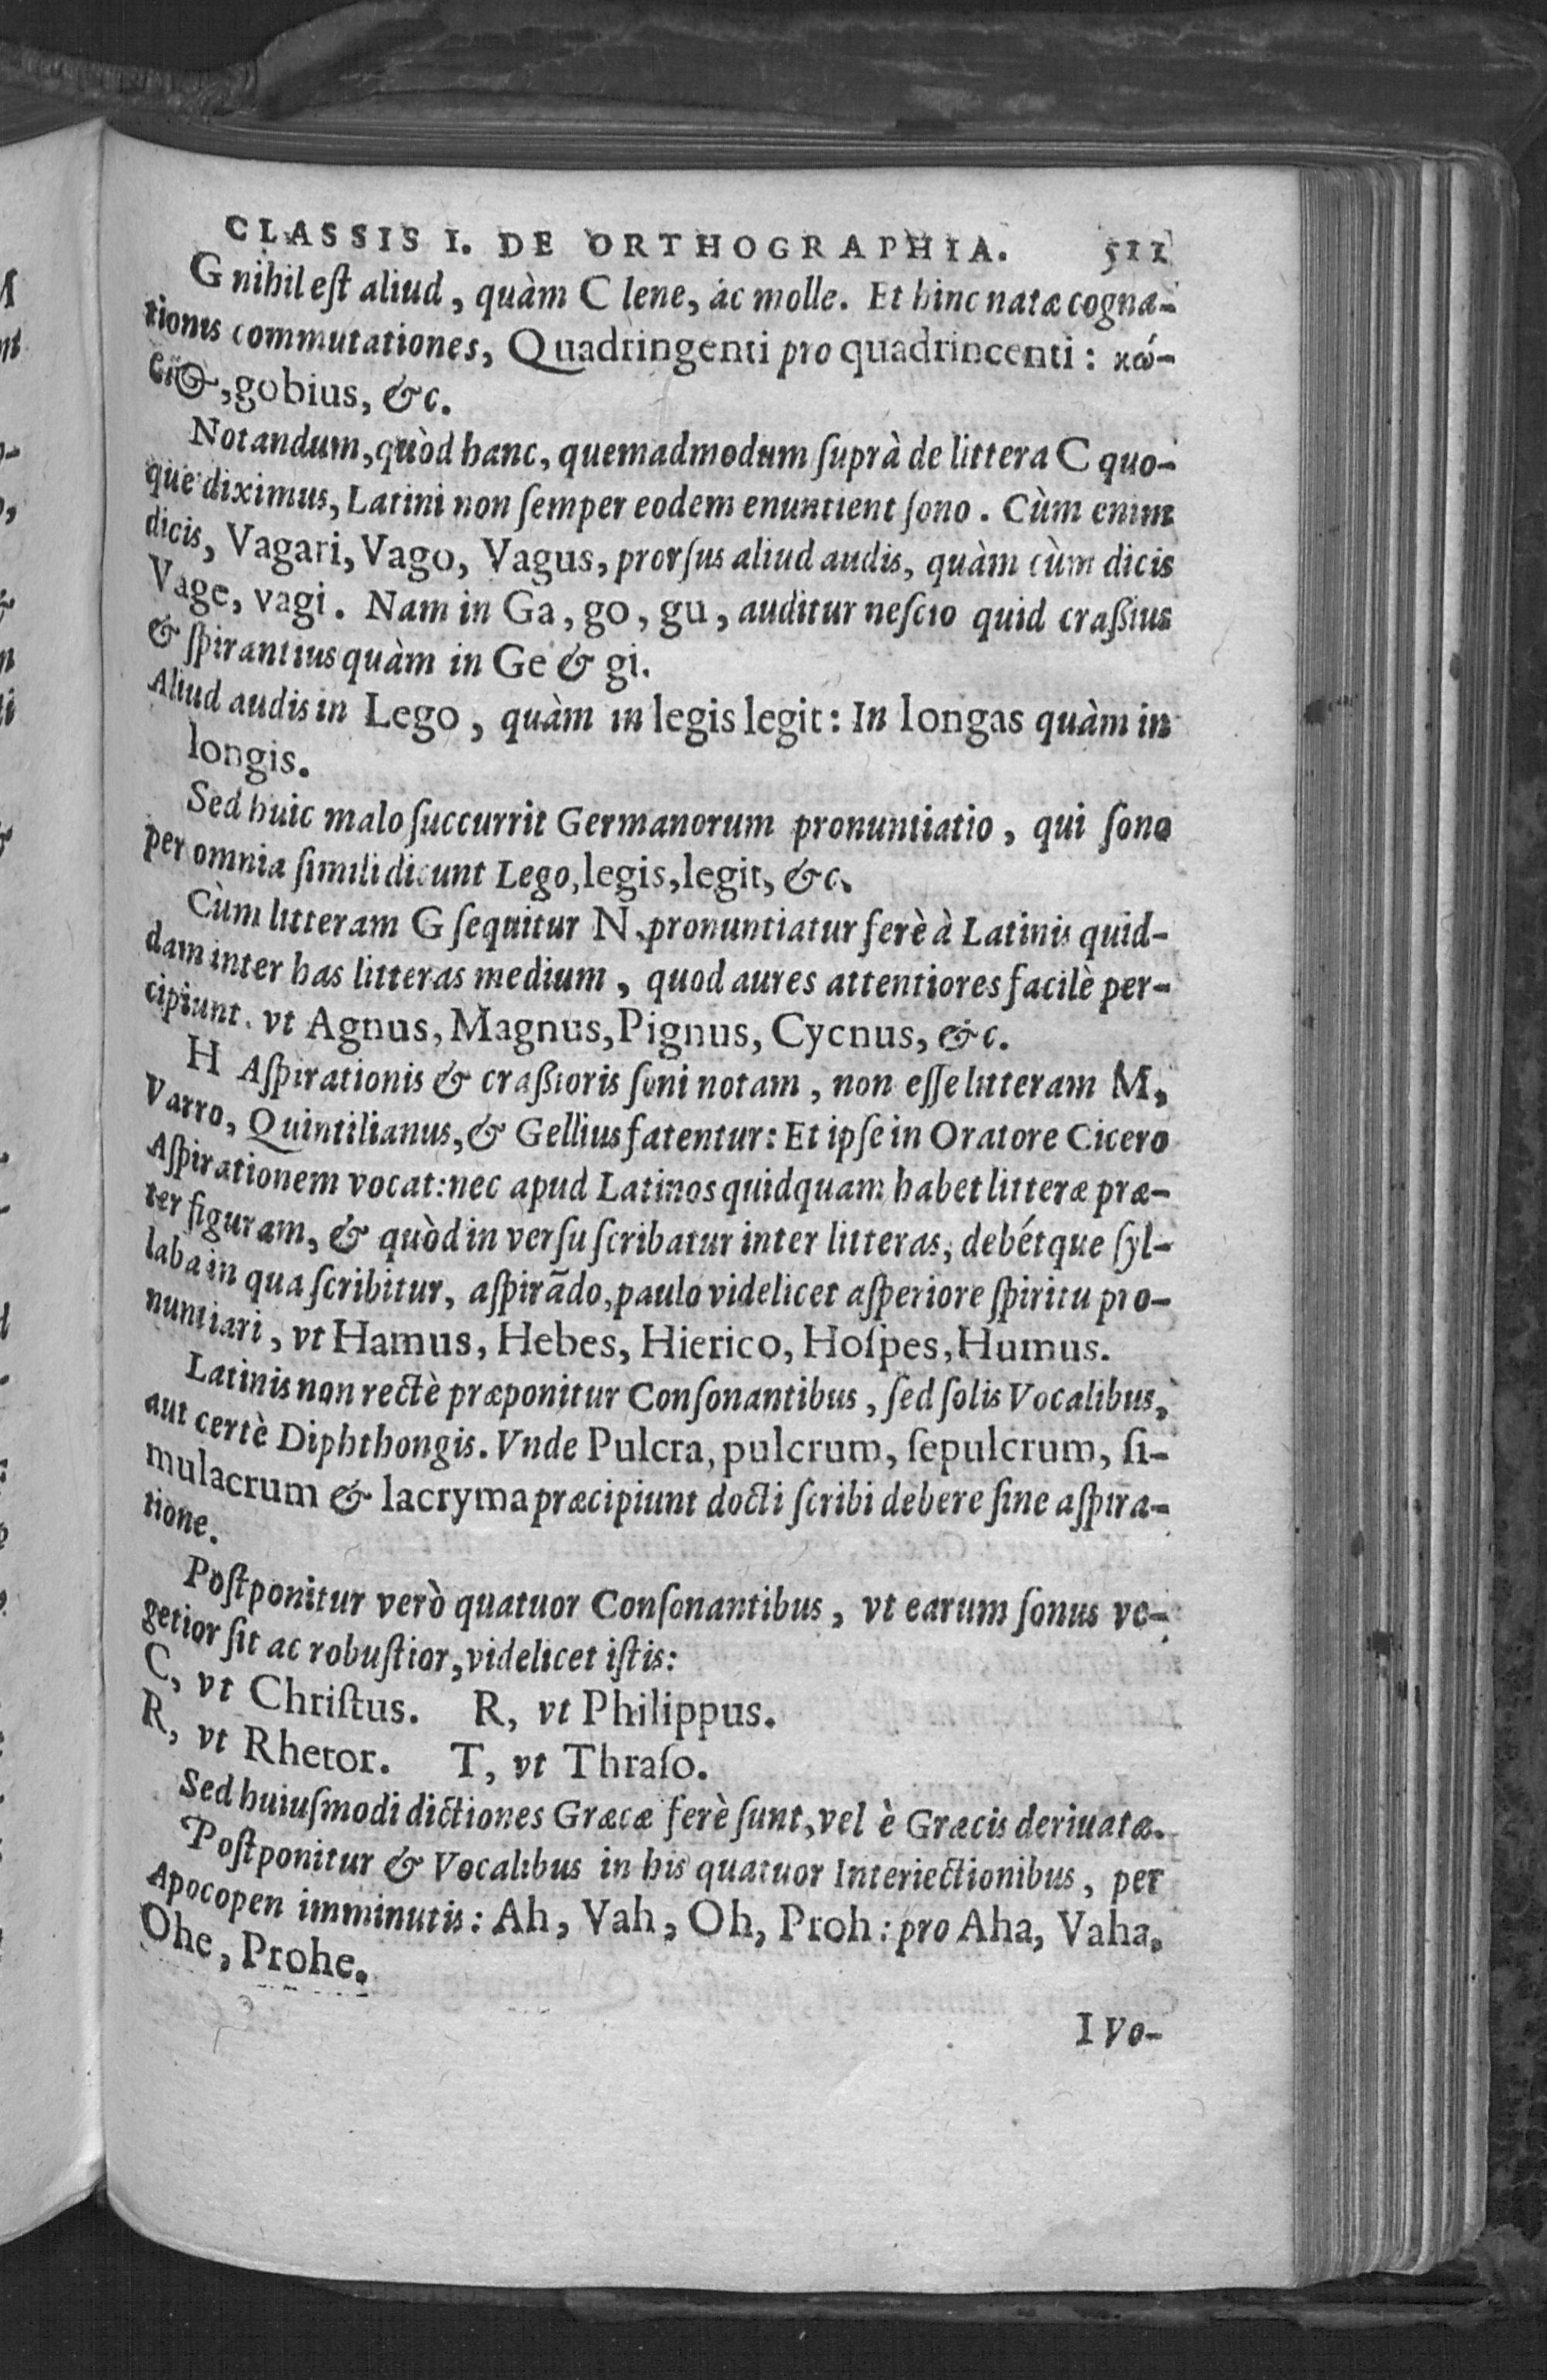 CLASSIS I. DE ORTHOGRAPHIA. 511
G nihil eſt aliud, quàm C lene, ac molle. Et hinc natæ cogna-
tionis commutationes, Quadringenti pro quadrincenti: κώ-
ϐιος, gobius, &c.
Notandum, quòd hanc, quemadmodum ſuprà de littera C quo-
que diximus, Latini non ſemper eodem enuntient ſono. Cùm enim
dicis, Vagari, Vago, Vagus, prorſus aliud audis, quàm cùm dicis
Vage, vagi. Nam in Ga, go, gu, auditur neſcio quid craßius
& ſpirantius quàm in Ge & gi.
Aliud audis in Lego, quàm in legis legit: In longas quàm in
longis.
Sed huic malo ſuccurrit Germanorum pronuntiatio, qui ſono
per omnia ſimili dicunt Lego, legis, legit, &c.
Cùm litteram G ſequitur N, pronuntiatur ferè à Latinis quid-
dam inter has litteras medium, quod aures attentiores facilè per-
cipiunt. vt Agnus, Magnus, Pignus, Cycnus, &c.
H Aſpirationis & craßioris ſoni notam, non eſſe litteram M.
Varro, Quintilianus, & Gellius fatentur: Et ipſe in Oratore Cicero
Aſpirationem vocat: nec apud Latinos quidquam habet litteræ præ-
ter figuram, & quòd in verſu ſcribatur inter litteras, debétque ſyl-
laba in qua ſcribitur, aſpirãdo, paulo videlicet aſperiore ſpiritu pro-
nuntiari, vt Hamus, Hebes, Hierico, Hoſpes, Humus.
Latinis non rectè præponitur Conſonantibus, ſed ſolis Vocalibus,
aut certè Diphthongis. Vnde Pulcra, pulcrum, ſepulcrum, ſi-
mulacrum & lacryma præcipiunt docti ſcribi debere ſine aſpira-
tione.
Poſtponitur verò quatuor Conſonantibus, vt earum ſonus ve-
getior ſit ac robuſtior, videlicet iſtis:
C, vt Chriſtus. R, vt Philippus.
R, vt Rhetor. T, vt Thraſo.
Sed huiuſmodi dictiones Græcæ ferè ſunt, vel è Græcis deriuatæ.
Poſtponitur & Vocalibus in his quatuor Interiectionibus, per
Apocopen imminutis: Ah, Vah, Oh, Proh: pro Aha, Vaha.
Ohe, Prohe.
I Vo-